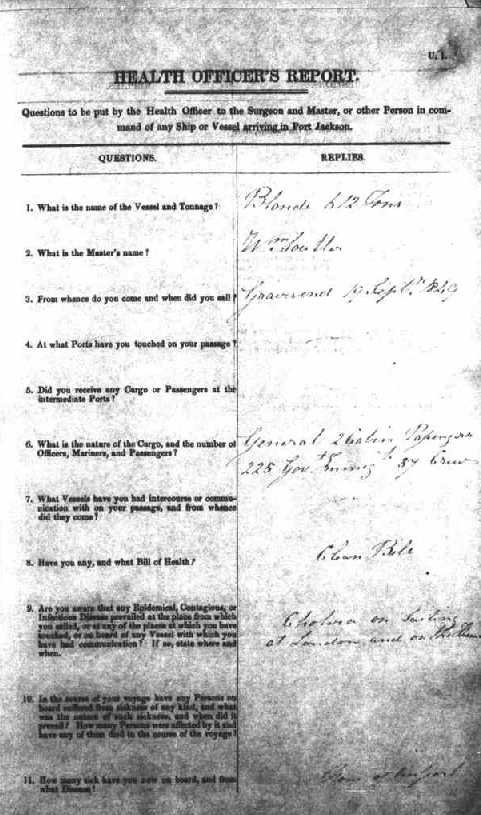 U. 1.
HEALTH OFFICER'S REPORT.
Questions to be put by the Health Officer to the Surgeon and Master, or other Person in com-
mand of any Ship or Vessel arriving in Port Jackson.
QUESTIONS.
REPLIES.
1. What is the name of the Vessel and Tonnage?
Blonde 612 Tons
2. What is the Master's name?
Wm
3. From whence do you come and when did you sail?
Gravesend 19 Sept. 1849
4. At what Ports have you touched on your passage?
5. Did you receive any Cargo or Passengers at the
intermediate Ports?
6. What is the nature of the Cargo, and the number of
Officers, Mariners, and Passengers?
General 2 Cabin Passengers
225 Govt. Immigts 37 Crew
7. What Vessels have you had intercourse or commu-
nication with on your passage, and from whence
did they come?
8. Have you any, and what Bill of Health?
Clean Bill
9. Are you aware that any Epidemical, Contagious, or
Infectious Disease prevailed at the place from which
you sailed, or at any of the places at which you have
touched, or on board of any Vessel with which you
have had communication? If so, state where and
when.
Cholera on Sailing
at London and on the
10. In the course of your voyage have any Persons on
board suffered from sickness of any kind, and what
was the nature of such sickness, and when did it
prevail? How many Persons were affected by it and
have any of them died in the course of the voyage?
11. How many sick have you now on board, and from
what Disease?